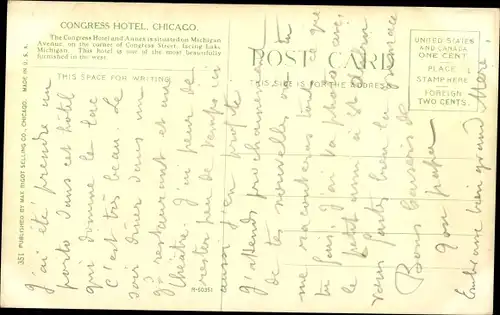 CONGRESS HOTEL, CHICAGO.
The Congress Hotel and Annex is situated on Michigan
Avenue, on the corner of Congress Street, facing Lake
Michigan. This hotel is one of the most beautifully
furnished in the west.
POST CARD
THIS SPACE FOR WRITING
THIS SIDE IS FOR THE ADDRESS
UNITED STATES
AND CANADA
ONE CENT
PLACE
STAMP HERE
FOREIGN
TWO CENTS.
351 PUBLISHED BY MAX RIGOT SELLING CO., CHICAGO. MADE IN U.S.A.
J'ai été prendre un
porto dans cet hôtel
qui domine le lac
C'est très beau. Le
soir dîner dans un
gd restaurant et au
théâtre. J'ai peur de
rester peu de temps ici
aussi j'en profite
J'attends prochainement
de tes nouvelles où tu
me raconteras tout ce que
tu fais. J'ai ta photo avec
le petit
Bons baisers de
ton papa
Embrasse bien grand Mère